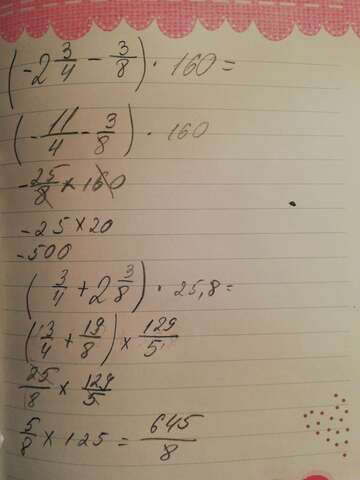 (-2 3/4 - 3/8) · 160 =
(-11/4 - 3/8) · 160
-25/8 × 160
-25 × 20
-500
(3/4 + 2 3/8) · 25,8 =
(3/4 + 19/8) × 129/5
25/8 × 129/5
5/8 × 125 = 645/8